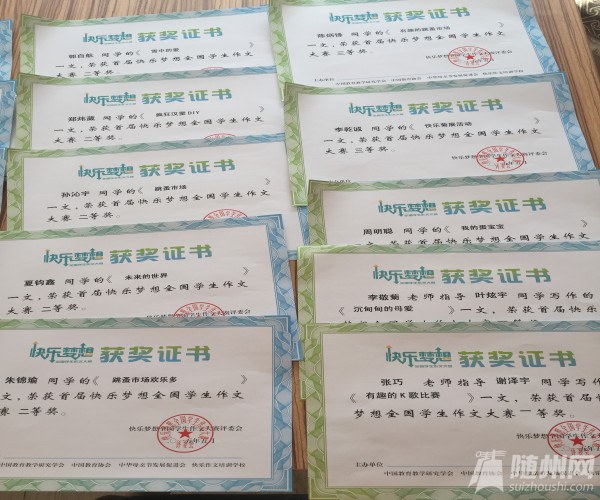 郭自航 同学的《 雪中的爱 》
一文,荣获首届快乐梦想全国学生作文
大赛 二等奖。
快乐梦想 获奖证书
郑炜晟 同学的《 疯狂汉堡DIY 》
一文,荣获首届快乐梦想全国学生作文
大赛 二等奖。
快乐梦想 获奖证书
孙沁宇 同学的《 跳蚤市场 》
一文,荣获首届快乐梦想全国学生作文
大赛 二等奖。
快乐梦想 获奖证书
夏钧鑫 同学的《 未来的世界 》
一文,荣获首届快乐梦想全国学生作文
大赛 二等奖。
快乐梦想全国学生作文大赛评委会
快乐梦想 获奖证书
朱锦瑜 同学的《 跳蚤市场欢乐多 》
文,荣获首届快乐梦想全国学生作文
赛 二等奖。
快乐梦想全国学生作文大赛评委会
中国教育教学研究学会 中国教育协会 快乐作文培训学校
同学的《 有趣的跳蚤市场 》
一文,荣获首届快乐梦想全国学生作文
大赛 三等奖。
主办单位
快乐梦想 获奖证书
李乾诚 同学的《 快乐聚餐活动 》
一文,荣获首届快乐梦想全国学生作文
大赛 三等奖。
快乐梦想全国学生作文大赛评委会
快乐梦想 获奖证书
周明聪 同学的《 我的蛋宝宝 》
一文,荣获首届快乐梦想全国学生作文
快乐梦想 获奖证书
李敬菊 老师指导 叶炫宇 同学写作的
《 沉甸甸的母爱 》一文,荣获首届快乐
快乐梦想 获奖证书
张巧 老师指导 谢泽宇 同学写作
《 有趣的K歌比赛 》一文,荣获首届快
梦想全国学生作文大赛一等奖。
主办单位
中国教育教学研究学会 中国教育协会
随州网
suizhoushi.com